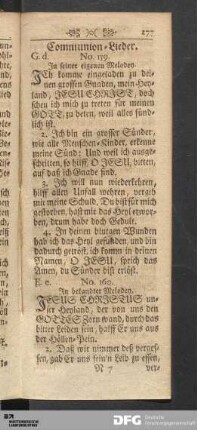 277
Communion-Lieder.
G. d. No. 159.
In seiner eigenen Melodey.
ICh komme eingeladen zu dei-
nen grossen Gnaden, mein Hey-
land, JESU CHRIST, doch
scheu ich mich zu treten für meinen
GOTT, zu beten, weil alles sünd-
lich ist.
2. Ich bin ein grosser Sünder,
wie alle Menschen-Kinder, erkenne
meine Sünd; Und weil ich ausge-
schritten, so hilff, O JESU, bitten,
auf daß ich Gnade find.
3. Ich will nun wiederkehren,
hilff allen Unfall wehren, vergib
mir meine Schuld. Du bist für mich
gestorben, hast mir das Heyl erwor-
ben, drum habe doch Gedult.
4. In deinen blutgen Wunden
hab ich das Heyl gefunden, und bin
dadurch getrost, ich komm in deinen
Namen, O JESU, sprich das
Amen, du Sünder bist erlöst.
E. e. No. 160.
In bekandter Melodey.
JESUS CHRISTUS un-
ser Heyland, der von uns den
GOTTES Zorn wand, durch das
bitter Leiden sein, halff Er uns aus
der Höllen-Pein.
2. Daß wir nimmer deß verges-
sen, gab Er uns sein'n Leib zu essen,
N 7 ver-
DFG
Deutsche
Forschungsgemeinschaft